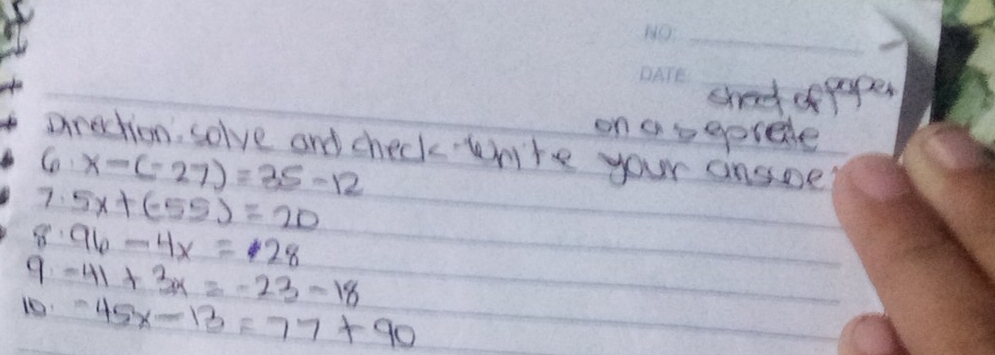 NO:
DATE
sheet of paper
on a seprete
Direction: solve and check. Write your answer
6. x - (-27) = 35 - 12
7. 5x + (-55) = 20
8. 96 - 4x = 28
9. -41 + 3x = -23 - 18
10. -45x - 13 = 77 + 90